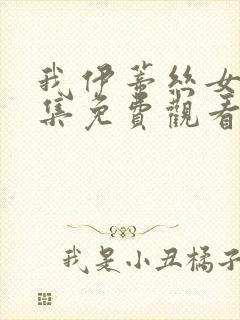 我伊蒂丝女
集免費觀看
我是小丑橘子